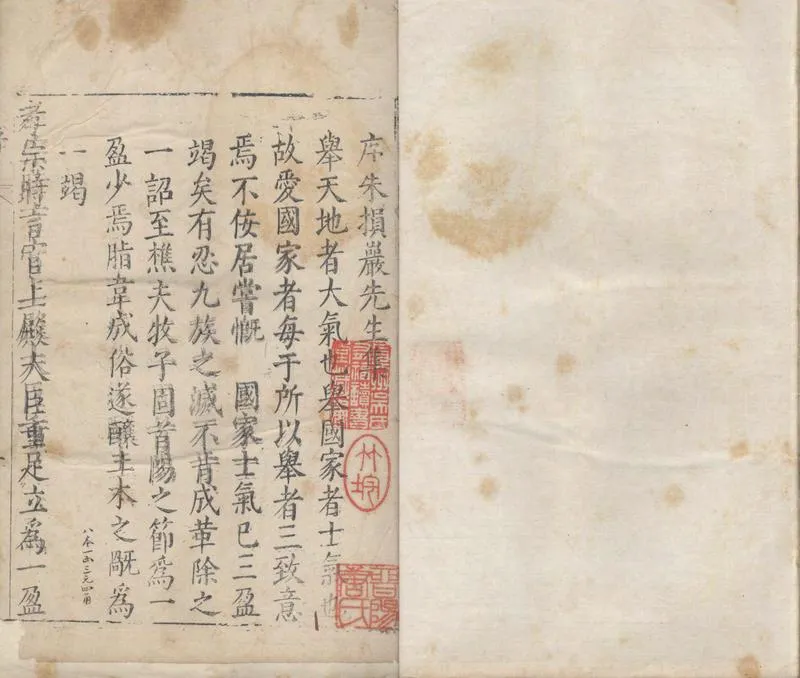 序朱損巖先生集
舉天地者大氣也舉國家者士氣也
故愛國家者每于所以舉者三致意
焉不佞居嘗慨 國家士氣已三盈
竭矣有忍九族之滅不肯成革除之
一詔至樵夫牧子固首陽之節爲一
盈少焉脂韋成俗遂釀土木之厭爲
一竭
孝宗時言官上殿大臣重足立爲一盈
八本一函三元四角
竹垞
晉陽唐氏